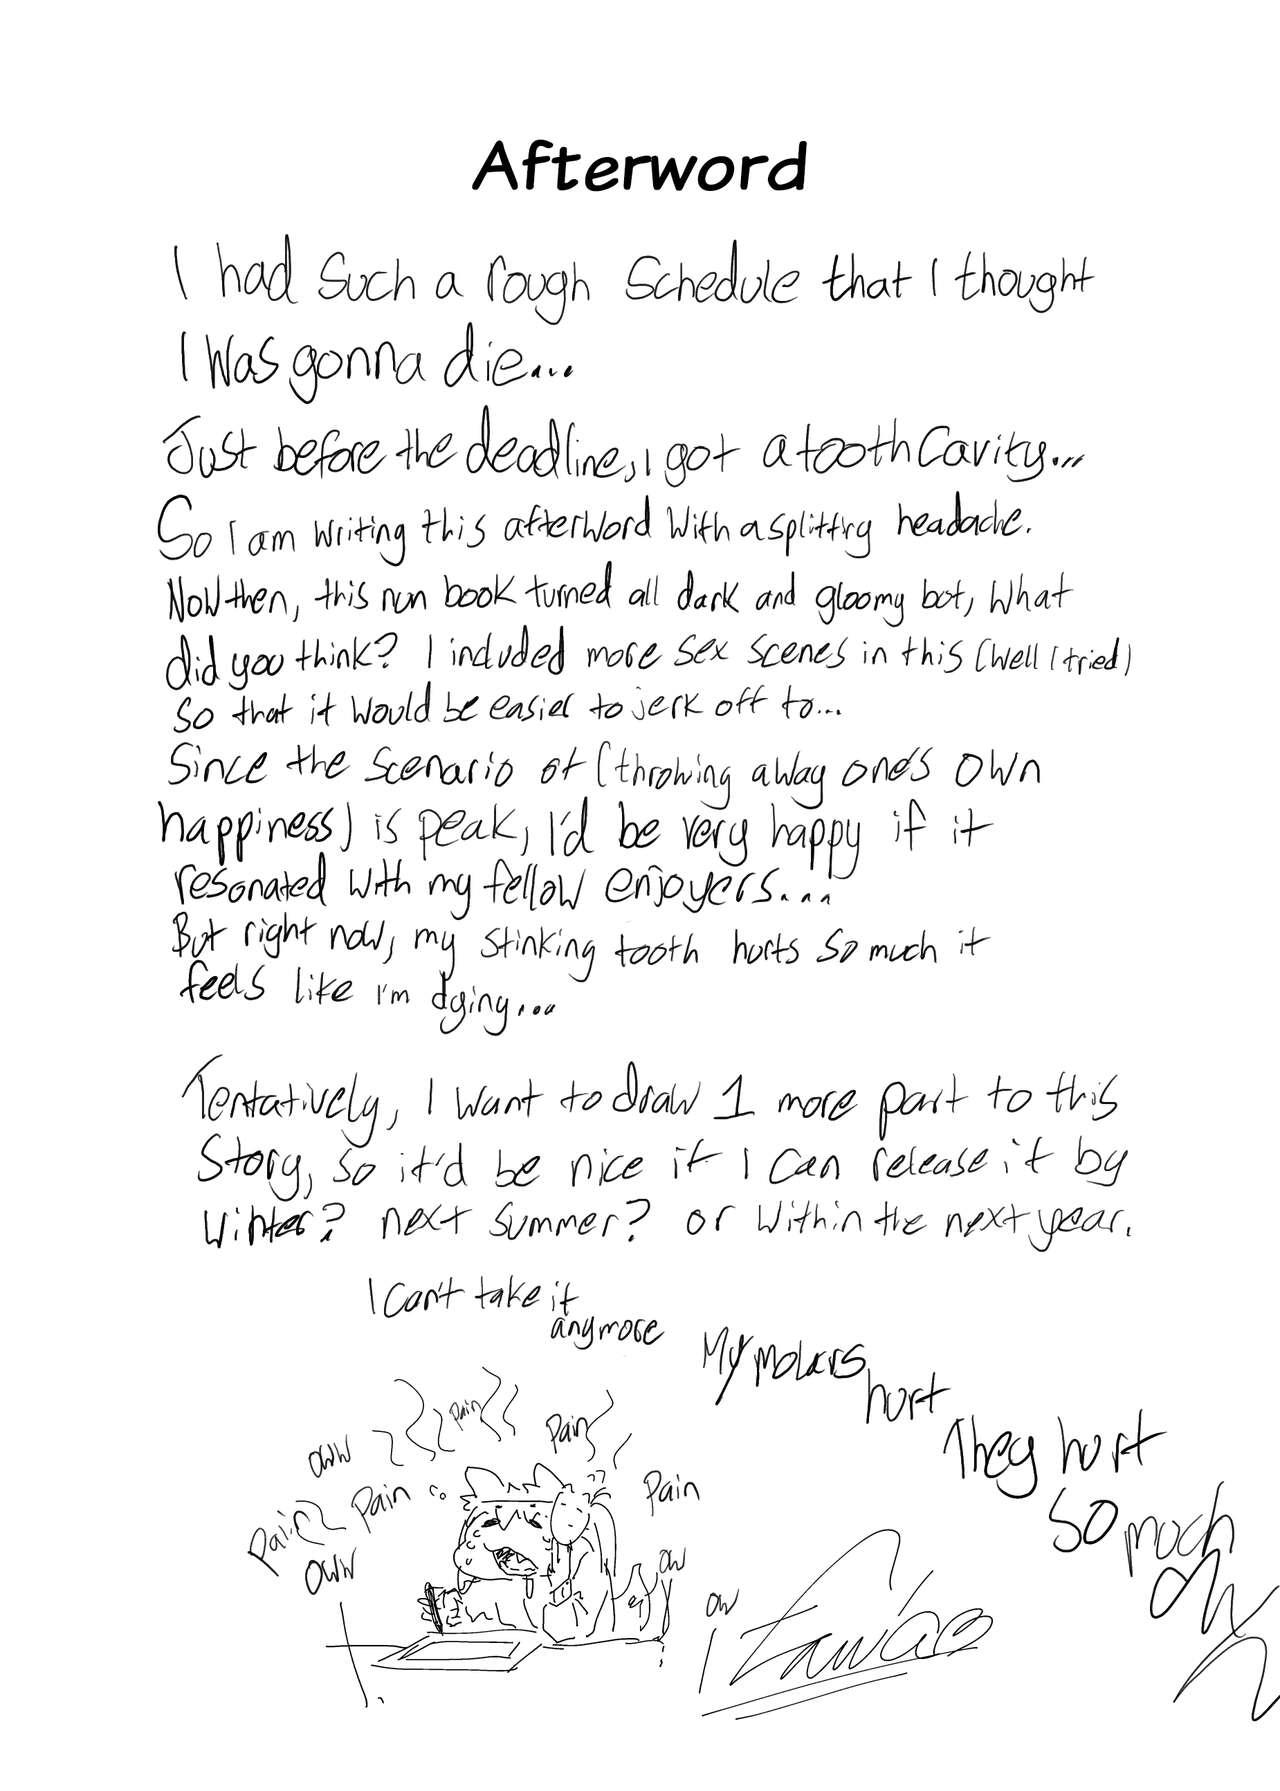 Afterword
I had such a rough schedule that I thought
I was gonna die...
Just before the deadline, I got a tooth cavity...
So I am writing this afterword with a splitting headache.
Now then, this nun book turned all dark and gloomy bot, what
did you think? I included more sex scenes in this (well I tried)
so that it would be easier to jerk off to...
Since the scenario of (throwing away one's own
happiness) is peak, I'd be very happy if it
resonated with my fellow enjoyers...
But right now, my stinking tooth hurts so much it
feels like I'm dying...
Tentatively, I want to draw 1 more part to this
story, so it'd be nice if I can release it by
winter? next summer? or within the next year.
I can't take it
anymore
My molars
hurt
They hurt
so much
oww
pain
pain
oww
pain
pain
pain
oww
ow
ow